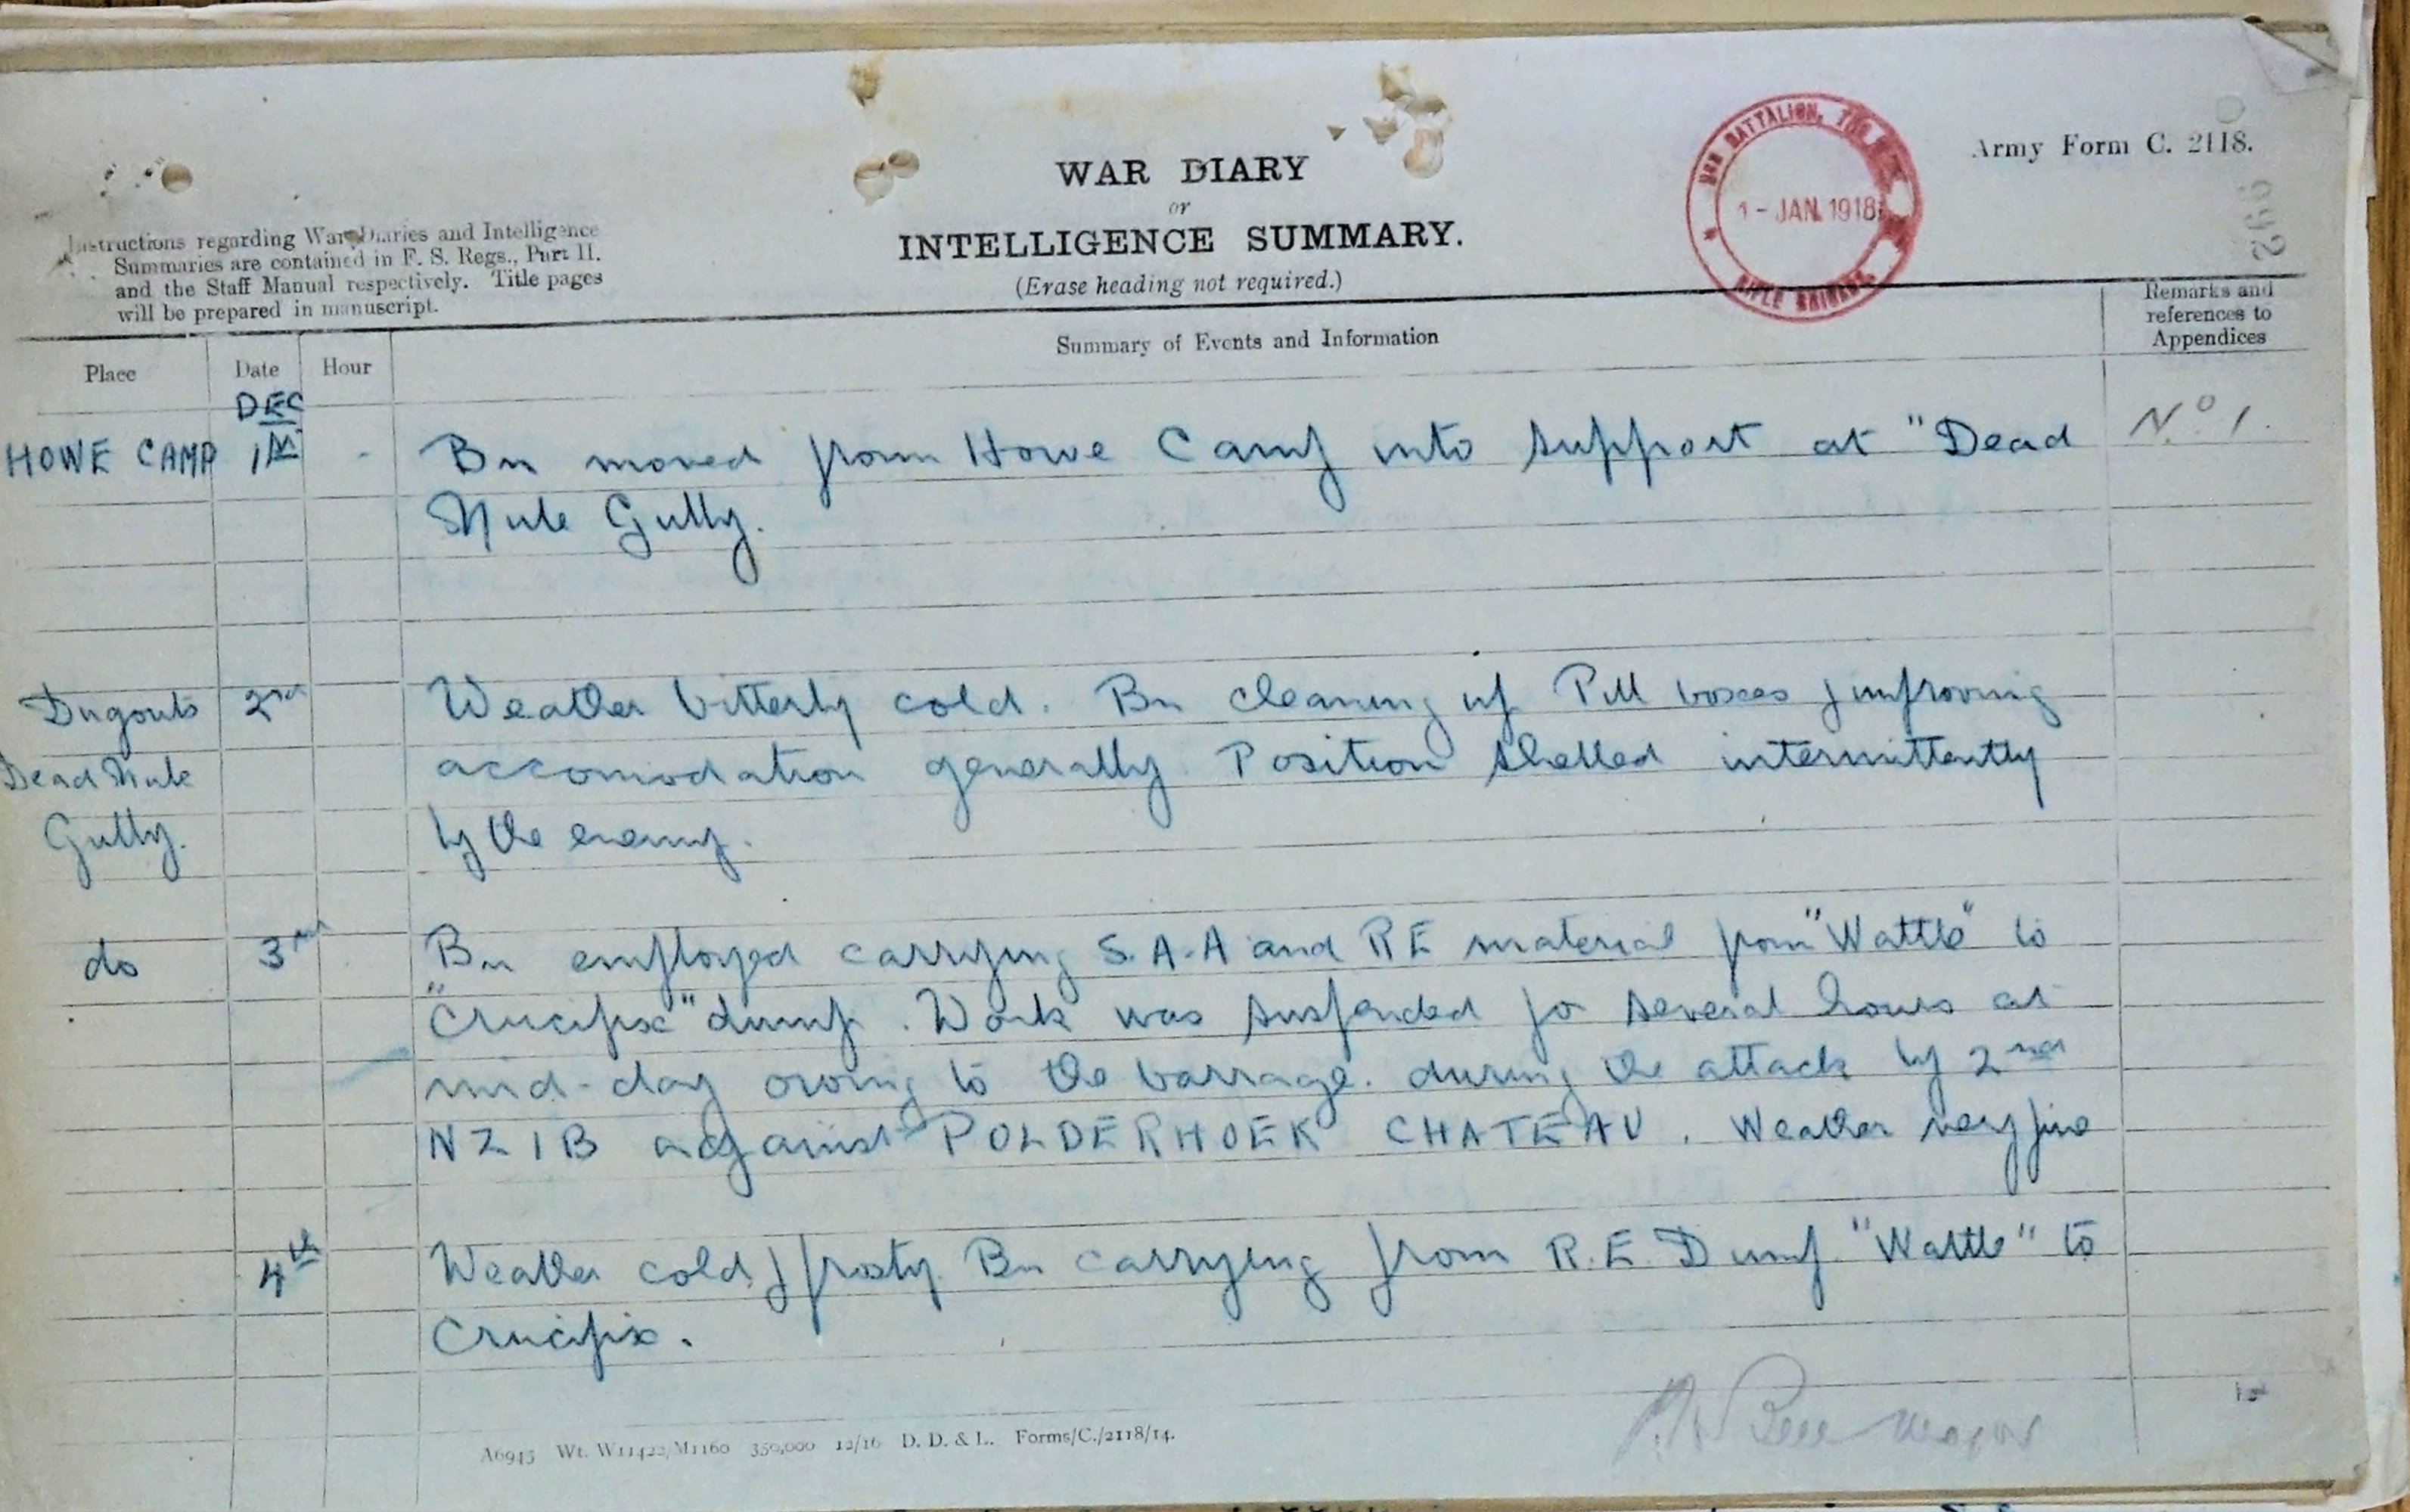 Army Form C. 2118.
WAR DIARY
or
INTELLIGENCE SUMMARY.
(Erase heading not required.)
BATTALION, THE
1 - JAN. 1918
RIFLE BRIGADE.
Instructions regarding War Diaries and Intelligence
Summaries are contained in F. S. Regs., Part II.
and the Staff Manual respectively. Title pages
will be prepared in manuscript.
Place
Date
Hour
Summary of Events and Information
Remarks and
references to
Appendices
DEC
HOWE CAMP 1st - Bn moved from Howe Camp into support at "Dead No 1.
Mule Gully.
Dugouts 2nd Weather bitterly cold. Bn cleaning up Pill boxes & improving
Dead Mule accomodation generally. Position shelled intermittently
Gully. by the enemy.
do 3rd Bn employed carrying S.A.A and RE material from "Wattle" to
"Crucifix" dump. Work was suspended for several hours at
mid-day owing to the barrage. during the attack by 2nd
NZIB against POLDERHOEK CHATEAU. Weather very fine
4th Weather cold & frosty. Bn carrying from R.E. Dump "Wattle" to
Crucifix.
Bell Major
A6945 Wt. W11422/M1160 350,000 12/16 D. D. & L. Forms/C./2118/14.